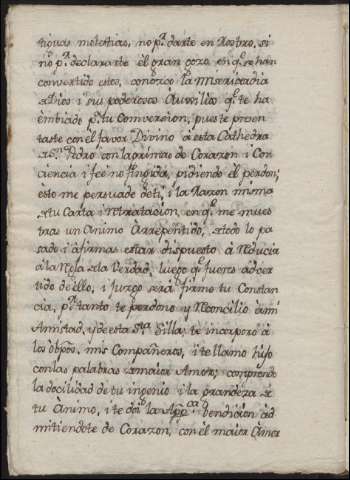 tiguas molestias, no p.ª darte en Rostro, si
no p.ª declararte el gran gozo, en q.e se han
convertido estos, conozco la Misericordia
de Dios i sus poderosos Auxilios q.e te ha
embiado p.ª tu Conversion, pues te presen
taste con el favor Divino â esta Cathedra
de S.n Pedro con lagrimas de Corazon i Con
ciencia i fee no fingida, pidiendo el perdon;
esto me persuade de ti, i la Razon misma
de tu Carta i Retratacion, en q.e me mues
tras un Animo Arrepentido, de todo lo pa
sado i afirmas estar dispuesto â Reducir
â la Regla de la Verdad, luego q.e fueres adver
tido de ello, i juzgo será firme tu Constan
cia, p.r tanto te perdono y Reconcilio â mi
Amistad, y de esta S.ta Silla; te incorporo â
los obpos. mis Compañeros, i te llamo hijo
con las palabras de maior Amor; comprendo
la docilidad de tu ingenio i la grandeza de
tu Animo, i te doi la App.ca bendicion ad
mitiendote de Corazon, con el maior Amor